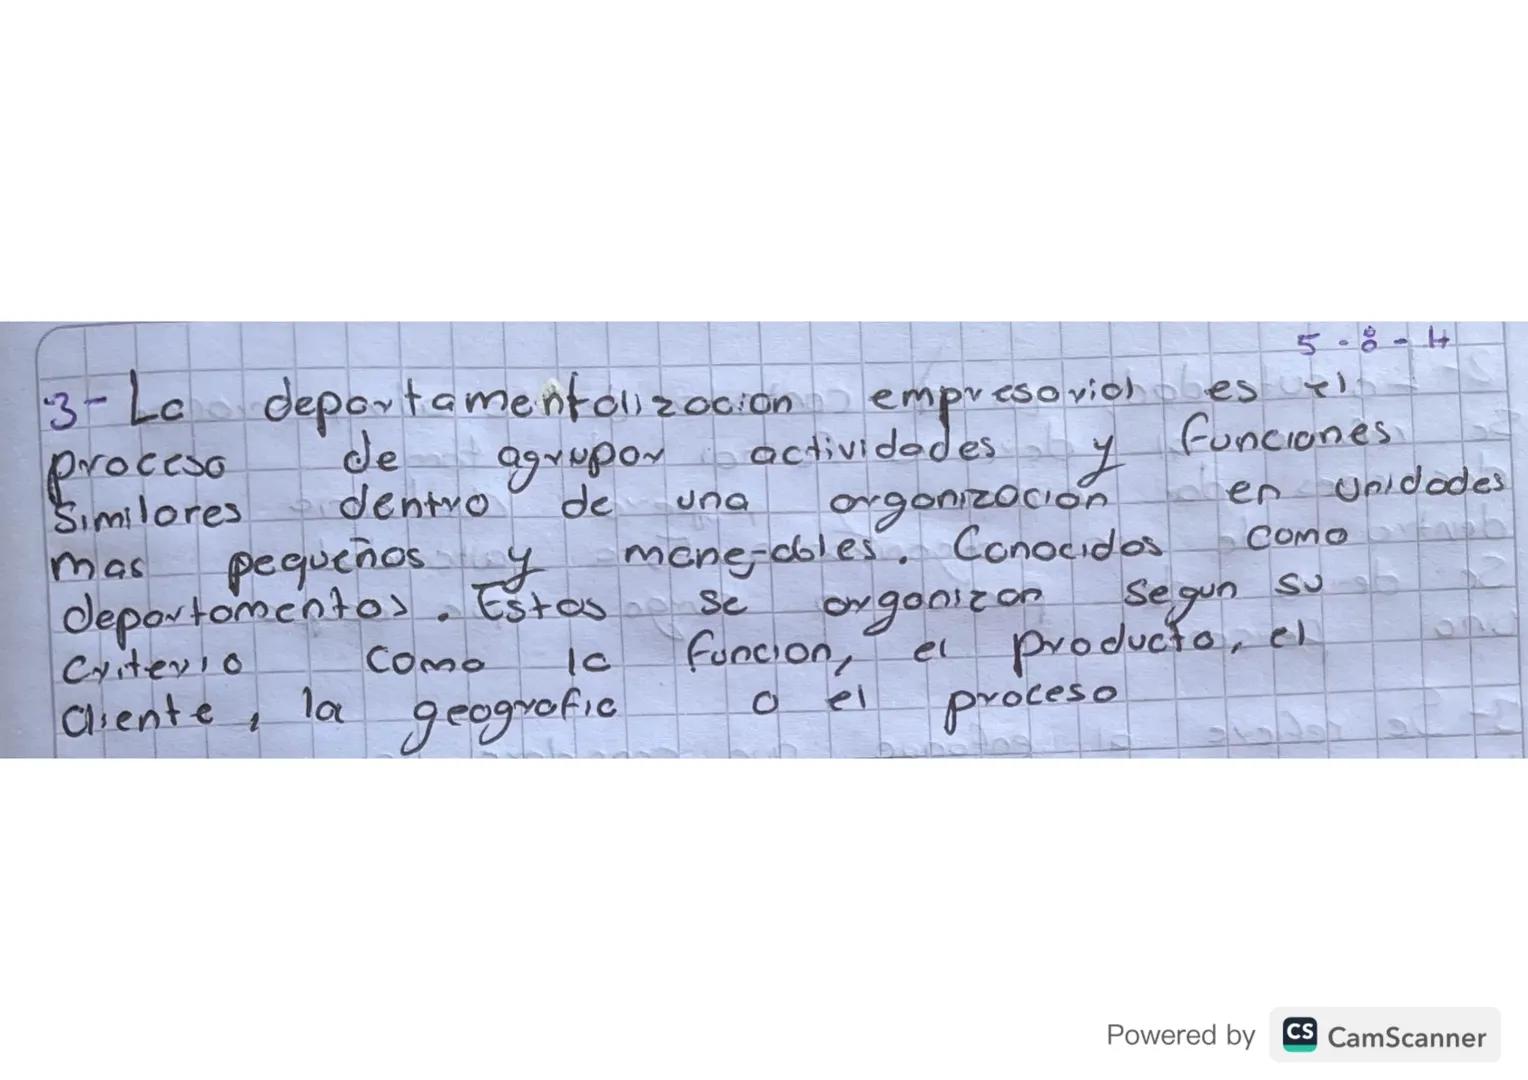 5-8-4
3- La departamentalizacion empresarial es el
proceso de agrupar actividades y funciones
Similares dentro de una organizacion en unidades
mas pequeñas y mane-ables. Conocidos como
departamentos. Estas se organizan Segun su
Criterio como la funcion, el producto, el
cliente, la geografia o el proceso
Powered by CS CamScanner